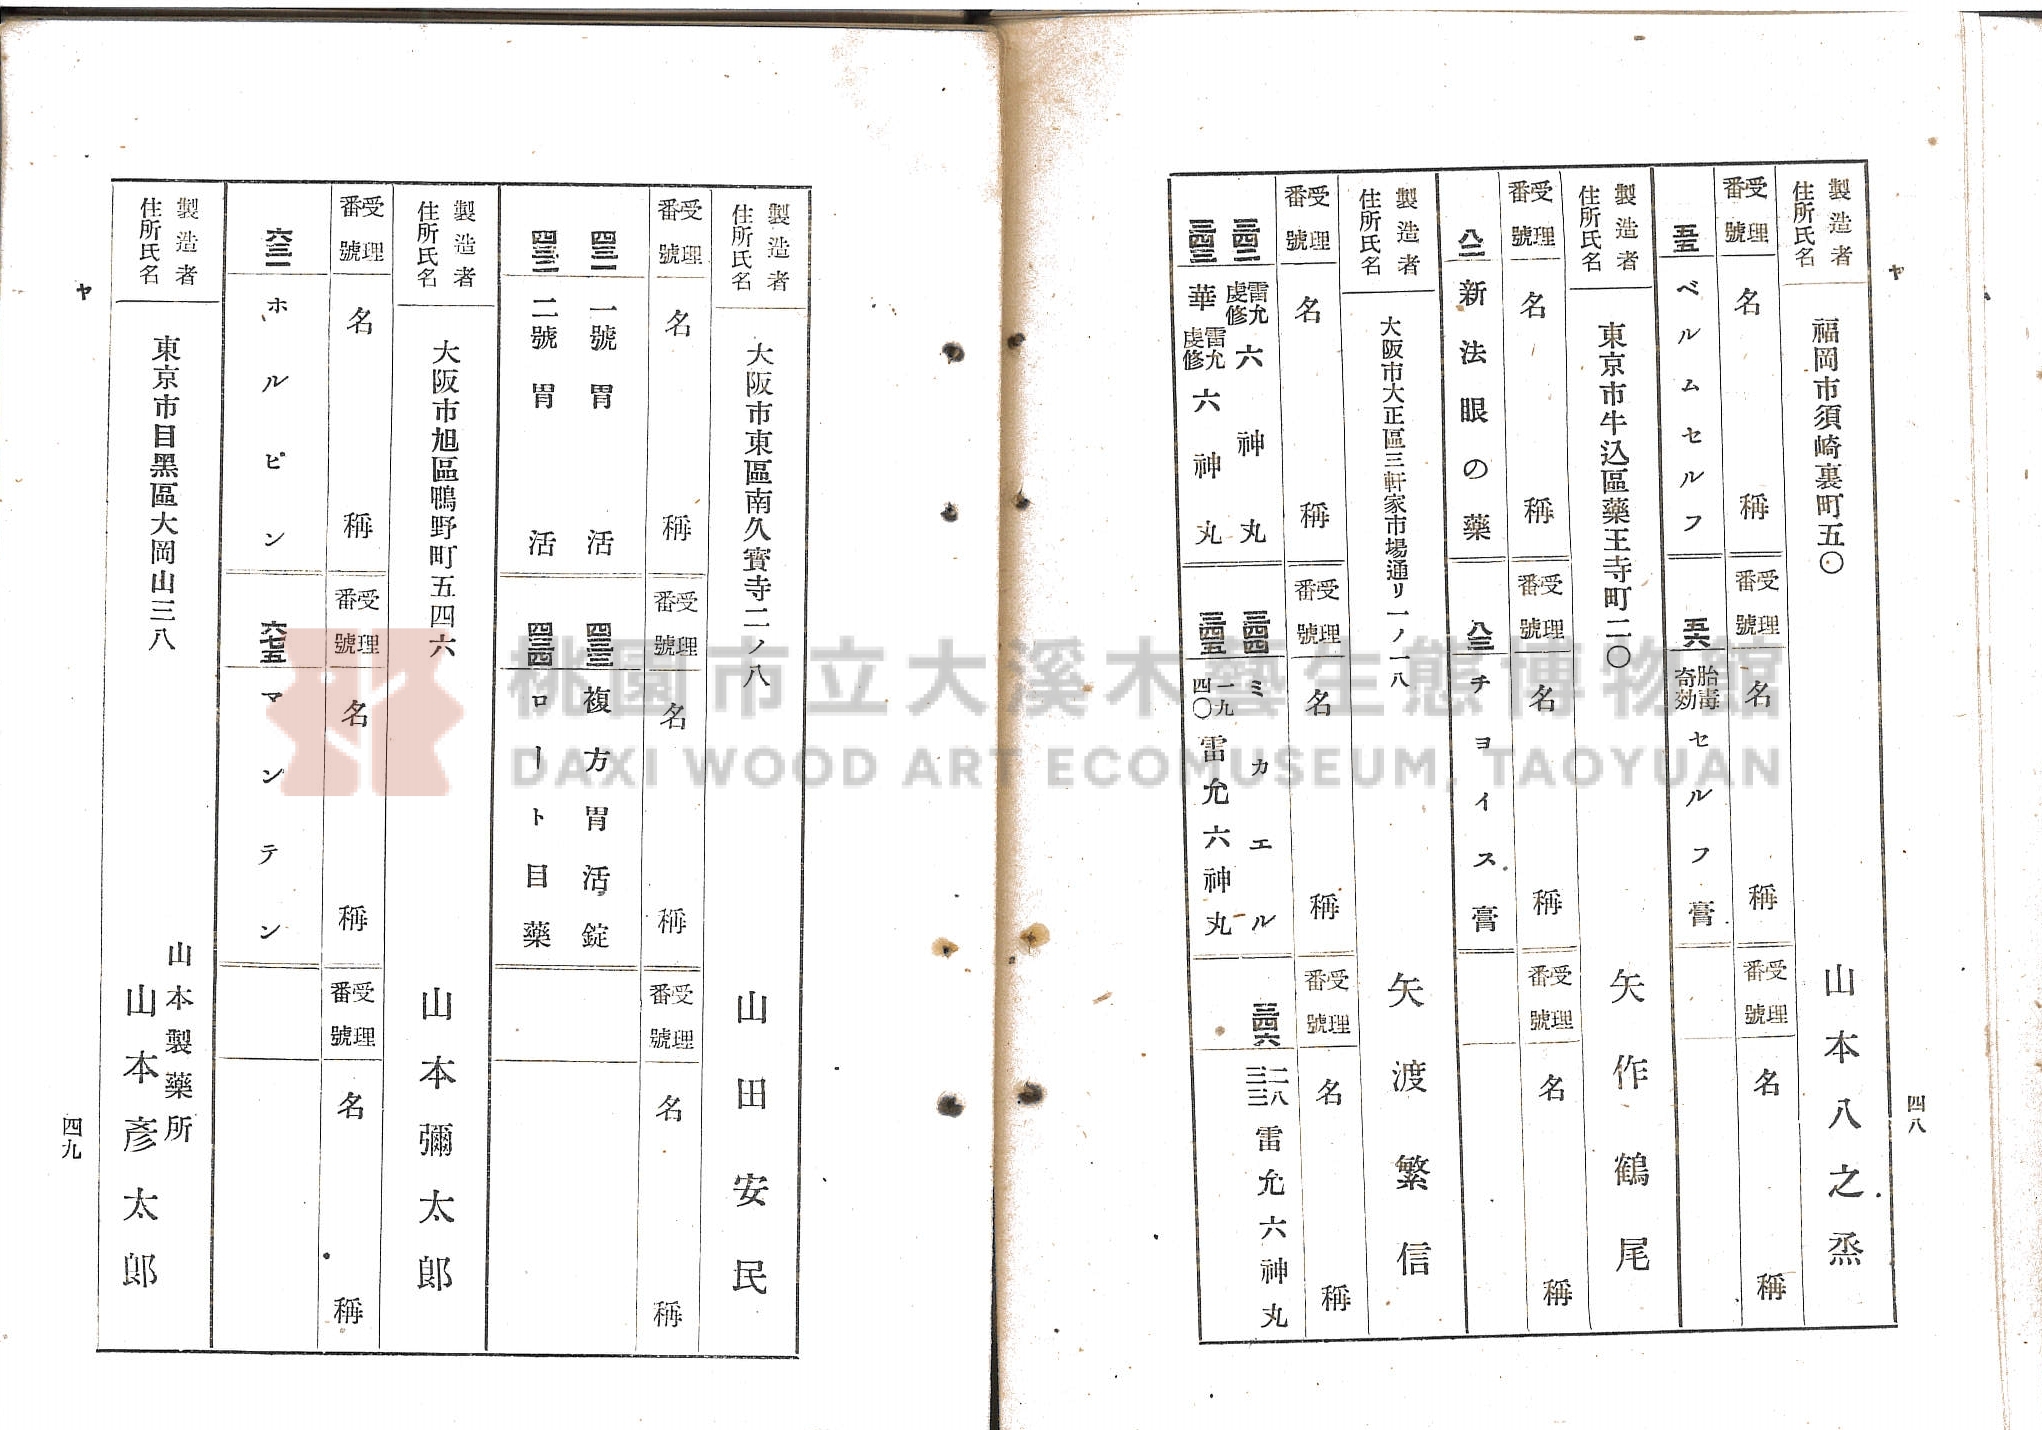 ヤ
四八
製造者住所氏名
福岡市須崎裏町五〇
山本八之烝
受理番號
名稱
受理番號
名稱
受理番號
名稱
五五
ベルムセルフ
五六
胎毒奇効
セルフ膏
製造者住所氏名
東京市牛込區藥王寺町二〇
矢作鶴尾
受理番號
名稱
受理番號
名稱
受理番號
名稱
八二
新法眼の藥
八三
チヨイス膏
製造者住所氏名
大阪市大正區三軒家市場通リ一ノ一八
矢渡繁信
受理番號
名稱
受理番號
名稱
受理番號
名稱
三四二
雷允虔修
六神丸
三四四
ミカエル
三四六
二八三三
雷允六神丸
三四三
華
雷允虔修
六神丸
三四五
一九四〇
雷允六神丸
製造者住所氏名
大阪市東區南久寳寺二ノ八
山田安民
受理番號
名稱
受理番號
名稱
受理番號
名稱
四三一
一號胃活
四三三
複方胃活錠
四三二
二號胃活
四三四
ロート目藥
製造者住所氏名
大阪市旭區鴨野町五四六
山本彌太郎
受理番號
名稱
受理番號
名稱
受理番號
名稱
六三二
ホルピン
六七五
マンンテン
製造者住所氏名
東京市目黑區大岡山三八
山本製藥所
山本彥太郎
ヤ
四九
桃園市立大溪木藝生態博物館
DAXI WOOD ART ECOMUSEUM, TAOYUAN